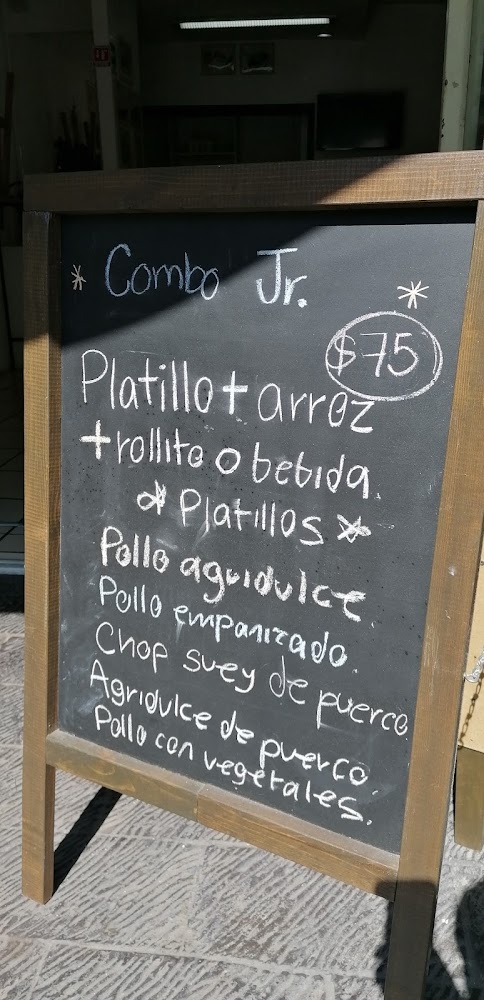 * Combo Jr. *
$75
Platillo + arroz
+ rollito o bebida.
* Platillos *
Pollo agridulce.
Pollo empanizado.
Chop suey de puerco.
Agridulce de puerco.
Pollo con vegetales.